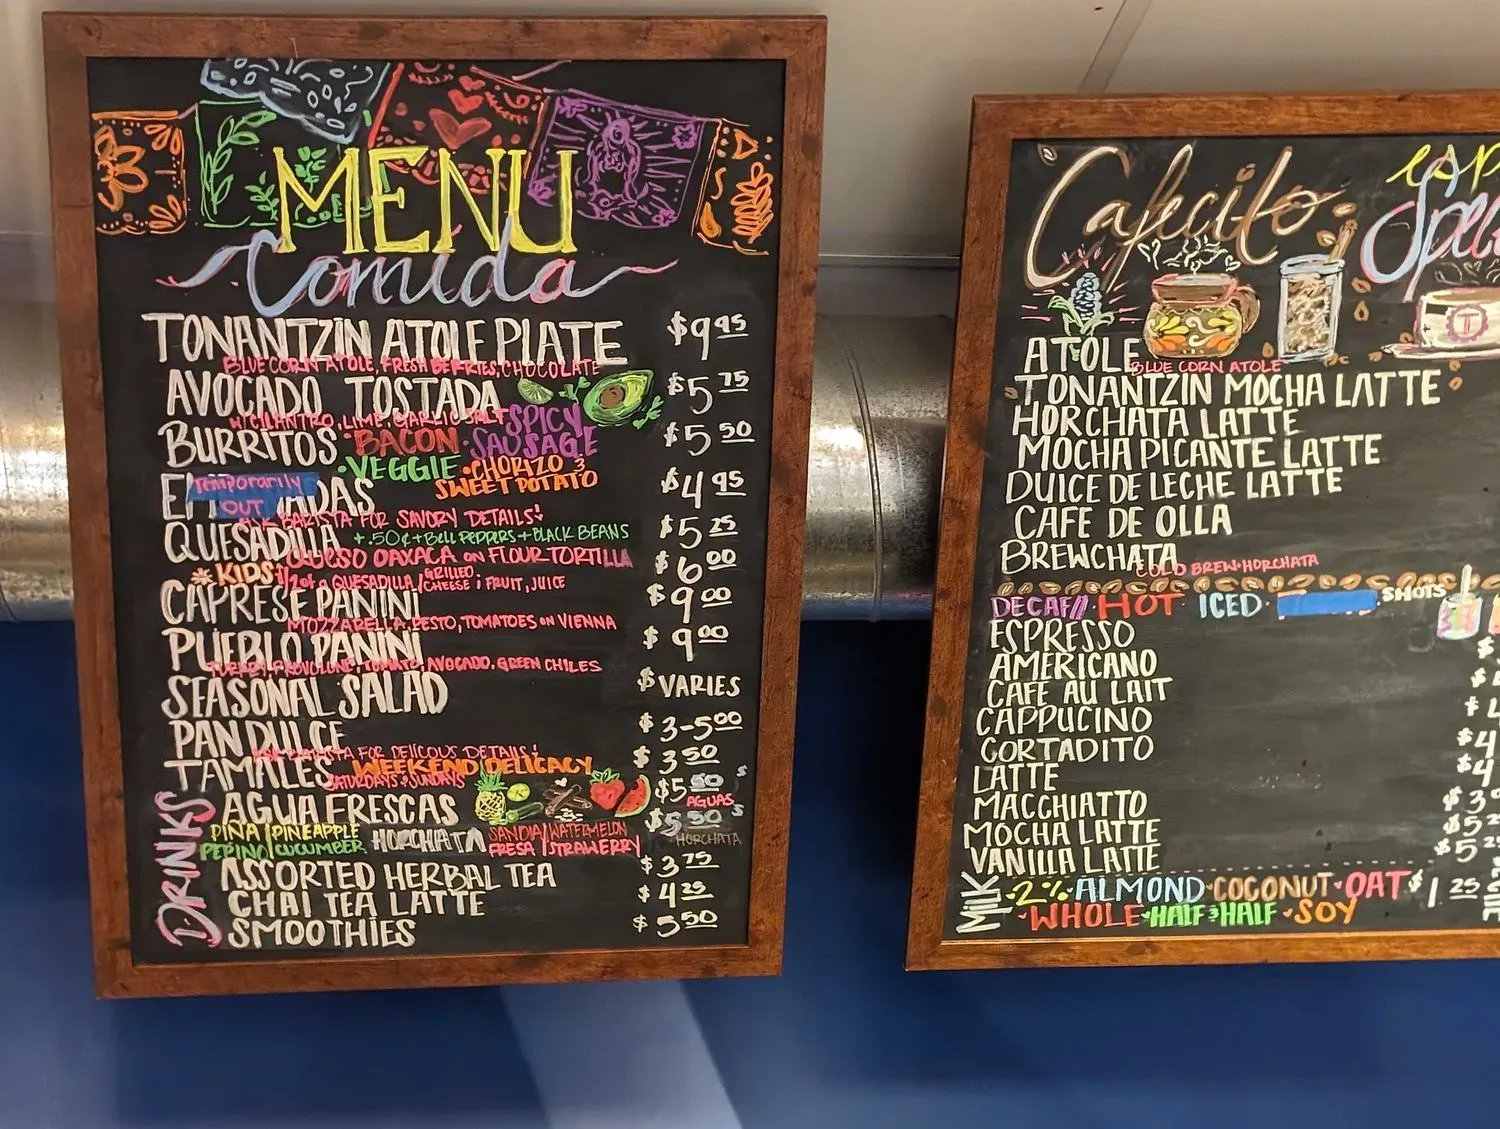 MENU
Comida
TONANTZIN ATOLE PLATE $9 95
BLUE CORN ATOLE, FRESH BERRIES, CHOCOLATE
AVOCADO TOSTADA $5 75
W/CILANTRO, LIME, GARLIC SALT
BURRITOS •BACON •SPICY SAUSAGE $5 50
•VEGGIE •CHORIZO & SWEET POTATO
TEMPORARILY OUT
$4 95
ASK BARISTA FOR SAVORY DETAILS!
QUESADILLA +.50¢+BELL PEPPERS+BLACK BEANS $5 25
QUESO OAXACA ON FLOUR TORTILLA
KIDS 1/2 of A QUESADILLA/GRILLED CHEESE; FRUIT, JUICE $6 00
CAPRESE PANINI $9 00
MOZZARELLA, PESTO, TOMATOES ON VIENNA
PUEBLO PANINI $9 00
TURKEY, PROVOLONE, TOMATO, AVOCADO, GREEN CHILES
SEASONAL SALAD $VARIES
PAN DULCE $3-5 00
ASK BARISTA FOR DELICOUS DETAILS!
TAMALES WEEKEND DELICACY $3 50
SATURDAYS & SUNDAYS
DRINKS
AGUA FRESCAS $5 50 AGUAS
PIÑA/PINEAPPLE HORCHATA SANDIA/WATERMELON $5 50 HORCHATA
PEPINO/CUCUMBER FRESA/STRAWERRY
ASSORTED HERBAL TEA $3 75
CHAI TEA LATTE $4 25
SMOOTHIES $5 50
Cafecito
ATOLE BLUE CORN ATOLE
TONANTZIN MOCHA LATTE
HORCHATA LATTE
MOCHA PICANTE LATTE
DULCE DE LECHE LATTE
CAFE DE OLLA
BREWCHATA
COLD BREW•HORCHATA
DECAF// HOT ICED SHOTS
ESPRESSO
AMERICANO
CAFE AU LAIT
CAPPUCINO
CORTADITO
LATTE
MACCHIATTO
MOCHA LATTE
VANILLA LATTE
MILK
•2%•ALMOND•COCONUT•OAT $1 25
•WHOLE•HALF&HALF•SOY